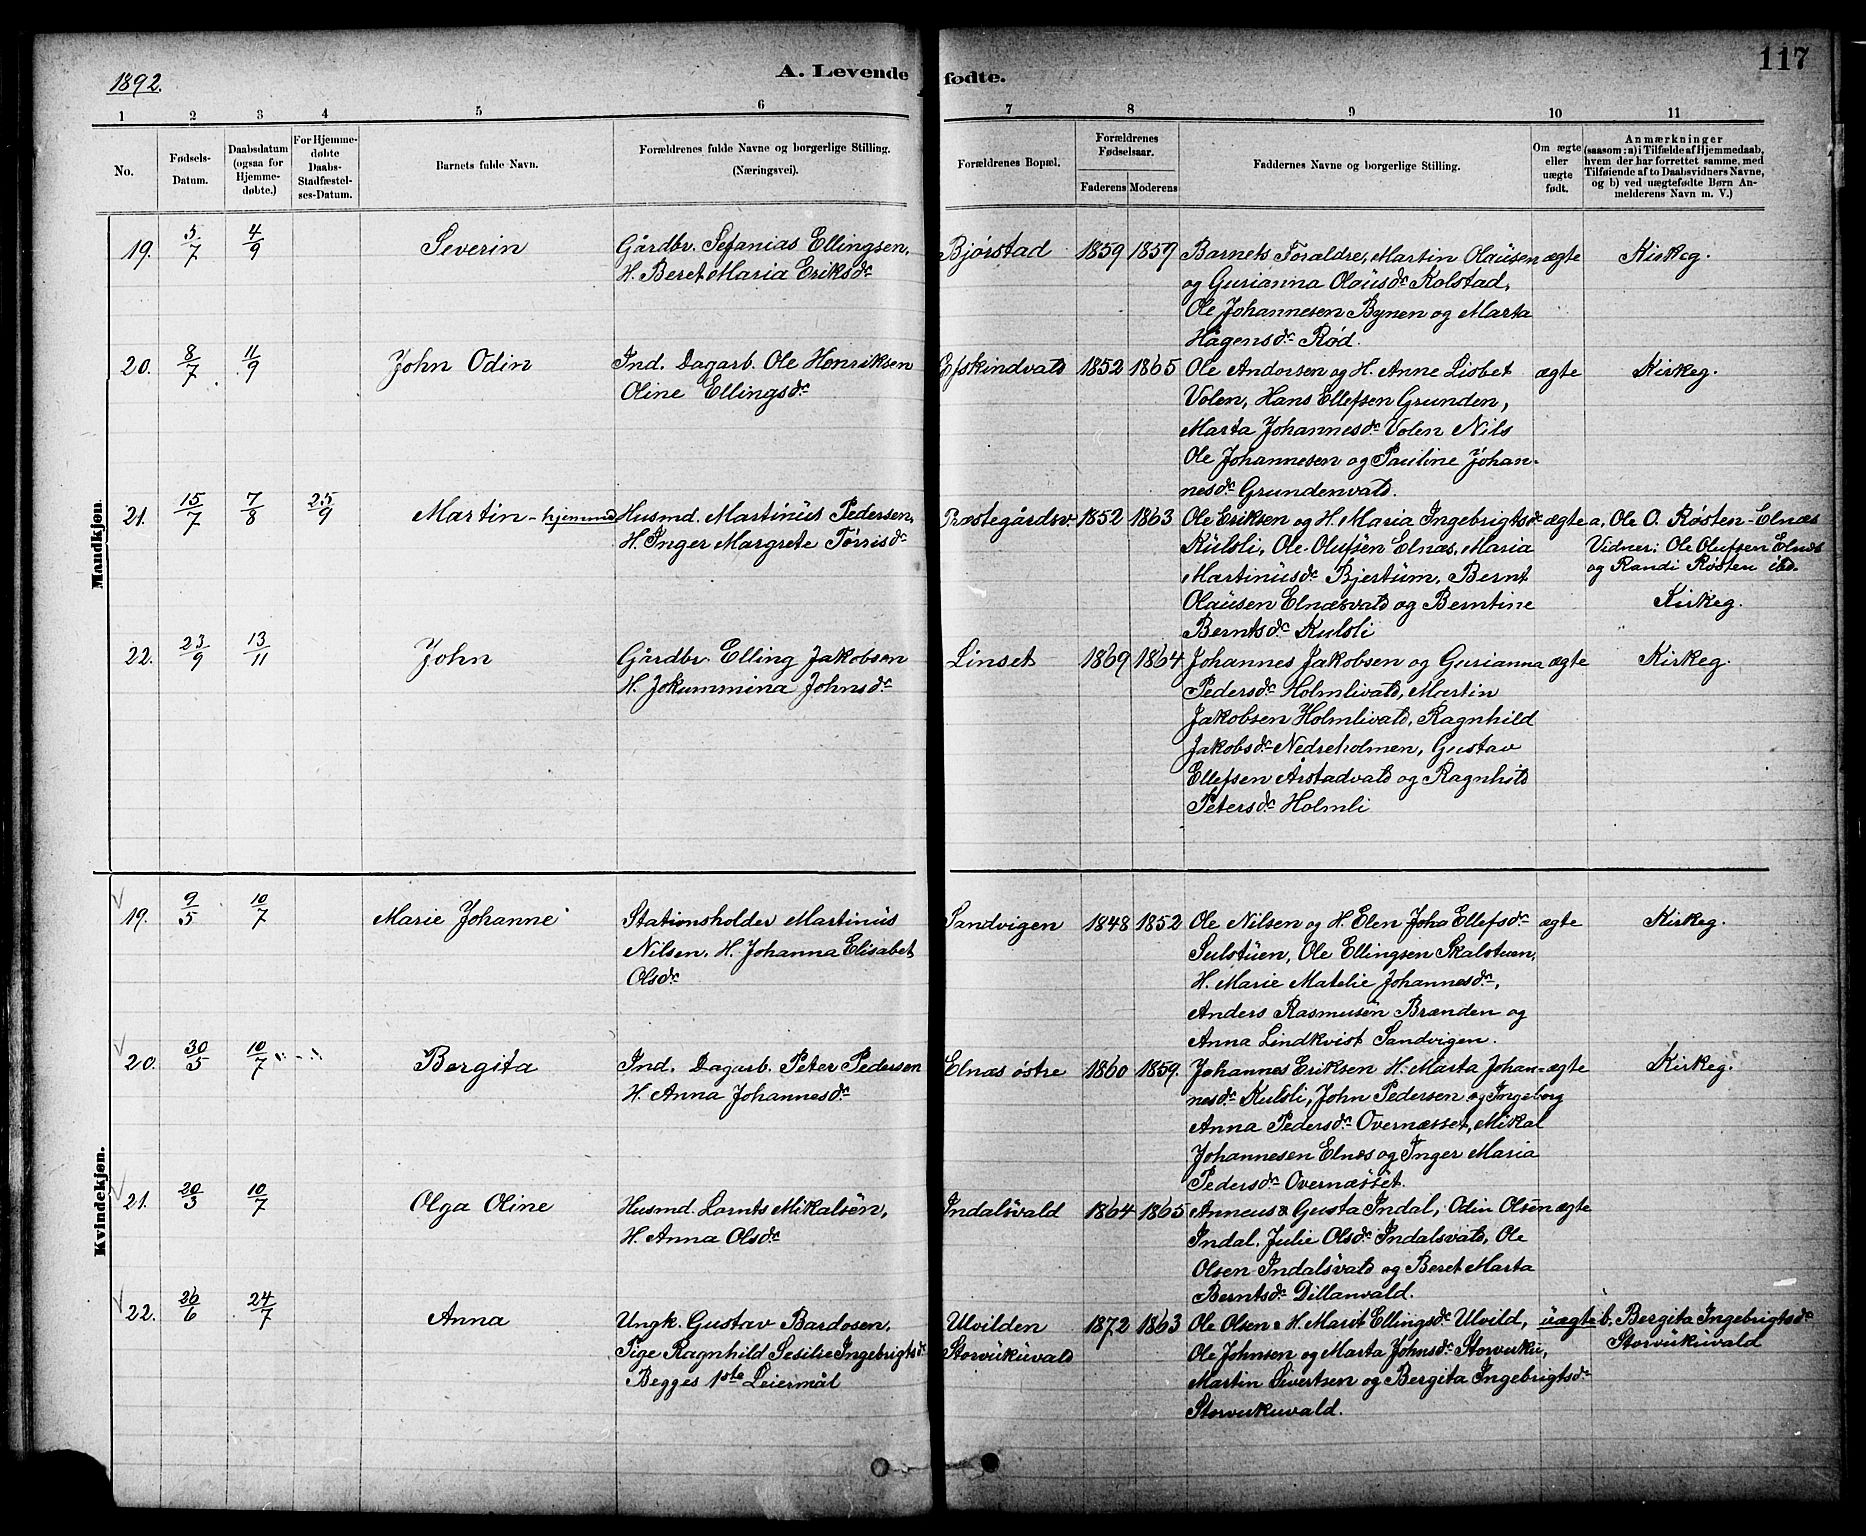 1892.
A. Levende fødte.
117
1 2 3 4 5 6 7 8 9 10 11
No.
Fødsels-Datum.
Daabsdatum (ogsaa for Hjemme-døbte.)
For Hjemme-døbte Daabs-Stadfæstel-ses-Datum.
Barnets fulde Navn.
Forældrenes fulde Navne og borgerlige Stilling.
(Næringsvei).
Forældrenes Bopæl.
Forældrenes Fødselsaar.
Faderens Moderens
Faddernes Navne og borgerlige Stilling.
Om ægte eller uægte født.
Anmærkninger
(saasom: a) i Tilfælde af Hjemmedaab,
hvem der har forrettet samme, med
Tilføiende af to Daabsvidners Navne,
og b) ved uægtefødte Børn An-
melderens Navn m. V.)
Mandkjøn
19. 5/7 4/9 Severin Gårdbr. Sefanias Ellingsen, Bjørstad 1859 1859 Barnets Forældre, Martin Olausen ægte Kirkeg.
H. Beret Maria Eriksdr og Gurianna Olausdr Kolstad,
Ole Johannesen Bynen og Marta
Hågensdr Rød.
20. 8/7 11/9 John Odin Ind. Dagarb. Ole Henriksen Efskindvald 1852 1865 Ole Andorsen og H. Anne Lisbet ægte Kirkeg.
Oline Ellingsdr Volen, Hans Ellefsen Grunden,
Marta Johannesdr Volen Nils
Ole Johannesen og Pauline Johan-
nesdr Grundenvald.
21. 15/7 7/8 25/9 Martin - hjemmed Husmd. Martinus Pedersen, Præstegårdsv. 1852 1863 Ole Eriksen og H. Maria Ingebrigtsdr ægte a, Ole O. Røsten - Elnæs
H. Inger Margrete Torrisdr Kulsli, Ole Olufsen Elnæs, Maria Vidner: Ole Olufsen Elnæs
Martinusdr Bjertum, Bernt og Randi Røsten ibd.
Olausen Elnæsvald og Berntine Kirkeg.
Berntsdr Kulsli
22. 23/9 13/11 John Gårdbr. Elling Jakobsen Linset 1869 1864 Johannes Jakobsen og Gurianna ægte Kirkeg.
H. Jokummina Johnsdr Pedersdr Holmlivald, Martin
Jakobsen Holmlivald, Ragnhild
Jakobsdr Nedreholmen, Gustav
Ellefsen Årstadvald og Ragnhild
Petersdr Holmli
Kvindekjøn.
19. 9/5 10/7 Marie Johanne Stationsholder Martinus Sandvigen 1848 1852 Ole Nilsen og H. Elen Joha Ellefsdr ægte Kirkeg.
Nilsen, H. Johanna Elisabet Sulstuen, Ole Ellingsen Skalstuen,
Olsdr H. Marie Matelie Johannesdr,
Anders Rasmusen Brænden og
Anna Lindkvist Sandvigen.
20. 30/5 10/7 Bergita Ind. Dagarb. Peter Pedersen Elnæs østre 1860 1859. Johannes Eriksen H. Marta Johan- ægte Kirkeg.
H. Anna Johannesdr nesdr Kulsli, John Pedersen og Ingeborg
Anna Pedersdr Overnæsset, Mikal
Johannesen Elnæs og Inger Maria
Pedersdr Overnæsset.
21. 20/3 10/7 Olga Oline Husmd. Lornts Mikalsen, Indalsvald 1864 1865 Anneus & Gusta Indal, Odin Olsen ægte
H. Anna Olsdr Indal, Julie Olsdr Indalsvald, Ole
Olsen Indalsvald og Beret Marta
Berntsdr Dillanvald.
22. 26/6 24/7 Anna Ungk. Gustav Bardosen, Ulvilden 1872 1863 Ole Olsen & H. Marit Ellingsdr Ulvild, uægte b, Bergita Ingebrigtsdr
Pige Ragnhild Sesilie Ingebrigtsdr Storvukuvald Ole Johnsen og Marta Johnsdr Storvuku, Storvukuvald
Begges 1ste Leiermål Martin Sivertsen og Bergita Ingebrigtsdr
Storvukuvald.